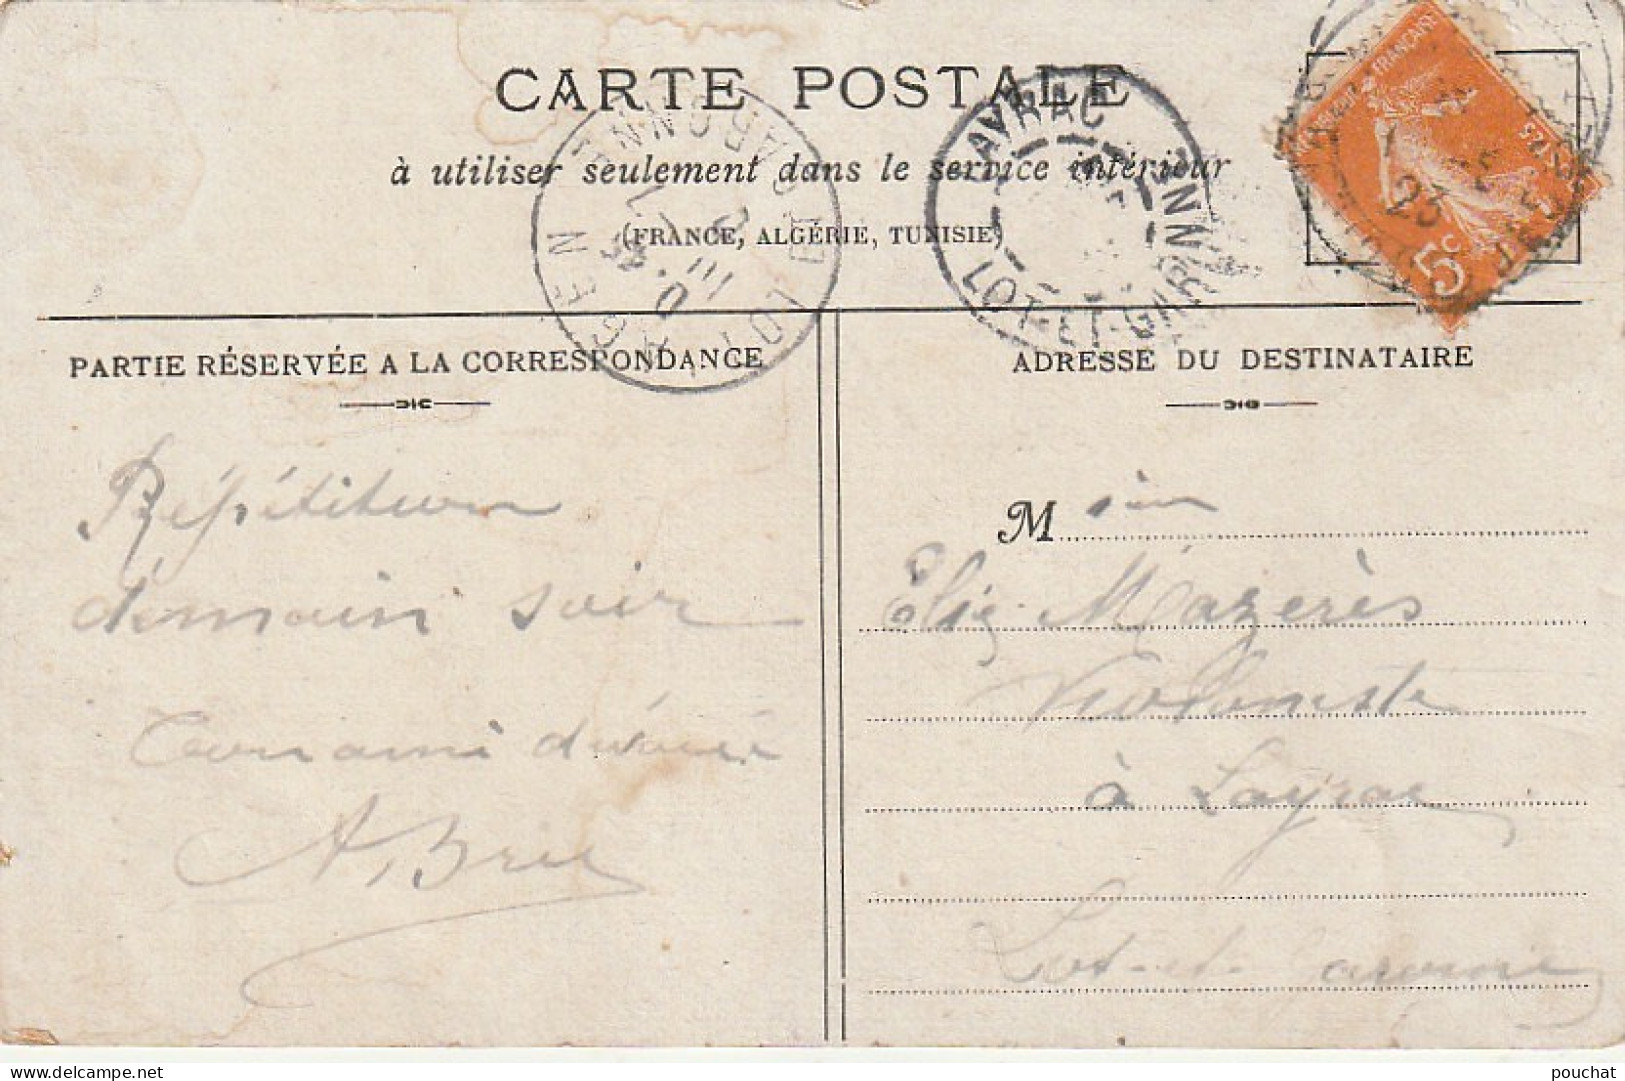 CARTE POSTALE
à utiliser seulement dans le service intérieur
(FRANCE, ALGÉRIE, TUNISIE)
AGEN
LOT ET GARONNE
LAYRAC
LOT-ET-GARONNE
RÉPUBLIQUE FRANÇAISE
POSTES
5c
23
PARTIE RÉSERVÉE A LA CORRESPONDANCE
Répétition
demain soir
Ton ami dévoué
A. Brie
ADRESSE DU DESTINATAIRE
M
Élie Mazérès
Violoniste
à Layrac
Lot-et-Garonne
pouchat